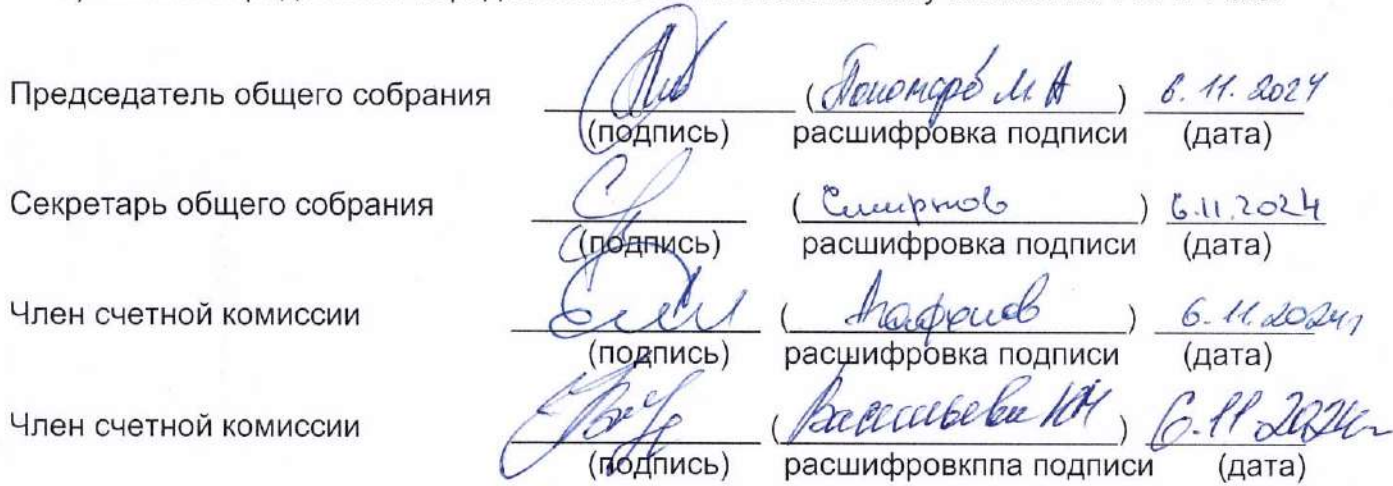 Председатель общего собрания (Пономарёв М.А) 6.11.2024
(подпись) расшифровка подписи (дата)
Секретарь общего собрания (Смирнов) 6.11.2024
(подпись) расшифровка подписи (дата)
Член счетной комиссии (Агафонов) 6.11.2024г
(подпись) расшифровка подписи (дата)
Член счетной комиссии (Васильева НН) 6.11.2024г
(подпись) расшифровкппа подписи (дата)